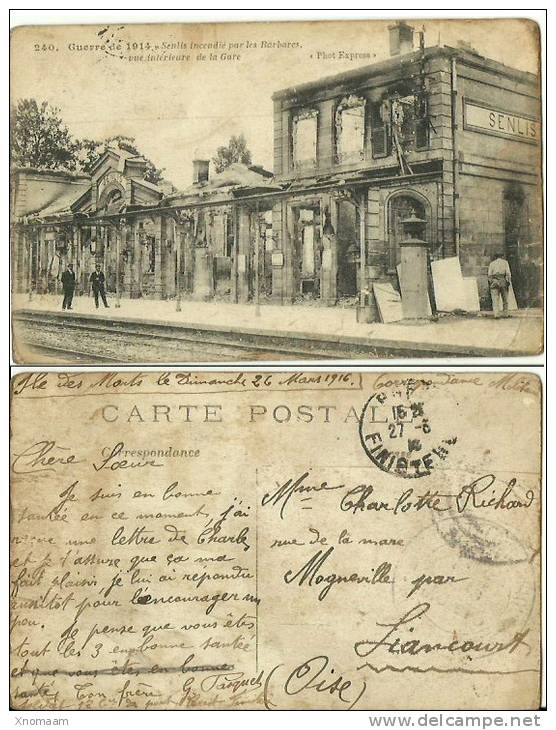 240. Guerre de 1914 - Senlis incendié par les Barbares,
vue intérieure de la Gare
« Phot Express »
SENLIS
Ile des Morts le Dimanche 26 Mars 1916. Correspondance Milit
CARTE POSTALE
Correspondance
15
27 - 3
16
FINISTERE
Chère Sœur
Je suis en bonne
santée en ce moment, j'ai
reçue une lettre de Charles
et je t'assure que ça ma
fait plaisir je lui ai répondu
aussitôt pour l'encourager un
peu. Je pense que vous êtes
tout les 3 en bonne santée
et que vous êtes en bonne
santé, Ton frère G Pasquet
Mme Charlotte Richard
rue de la mare
Mogneville par
Liancourt
(Oise)
Xnomaam
www.delcampe.net